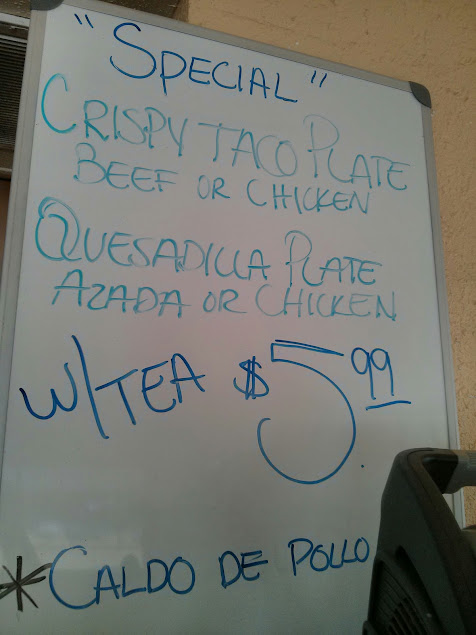 "SPECIAL"
CRISPY TACO PLATE
BEEF OR CHICKEN
QUESADILLA PLATE
AZADA OR CHICKEN
W/TEA $5.99
*CALDO DE POLLO